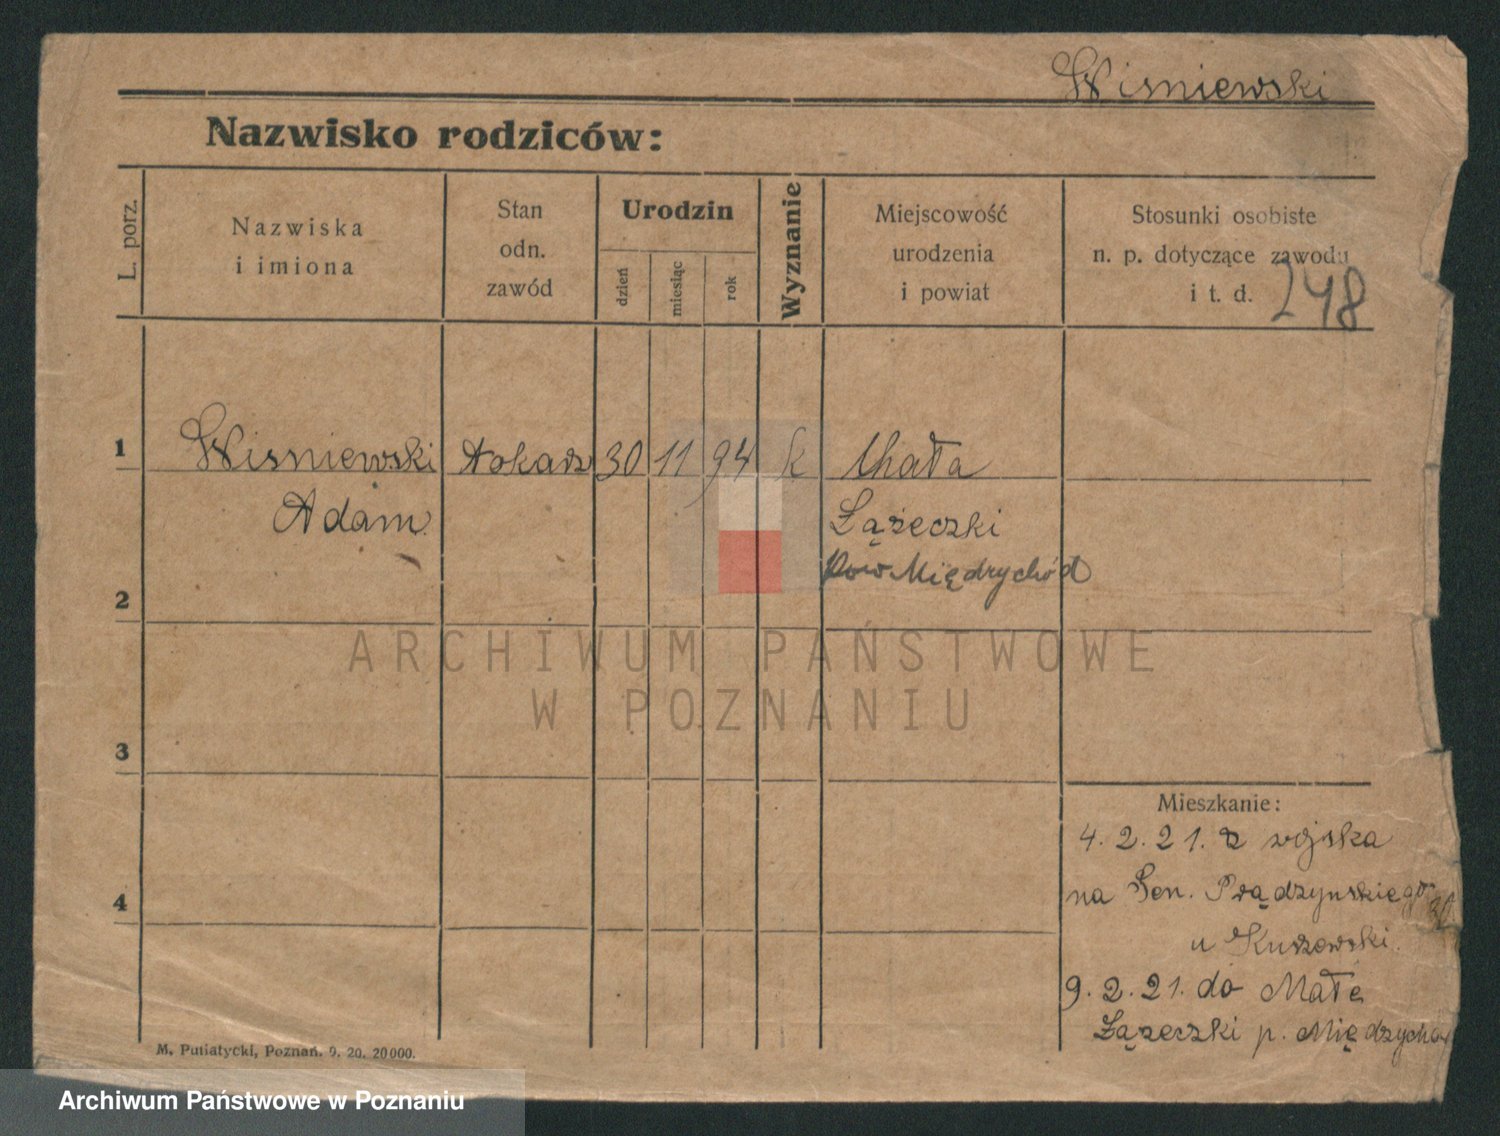 Wisniewski
Nazwisko rodziców:
L. porz.
Nazwiska
i imiona
Stan
odn.
zawód
Urodzin
dzień
miesiąc
rok
Wyznanie
Miejscowość
urodzenia
i powiat
Stosunki osobiste
n. p. dotyczące zawodu
i t. d.
248
1
Wisniewski
30
11
94
k
Adam
Łążeczki
Pow Międzychód
2
ARCHIWUM PAŃSTWOWE
W POZNANIU
3
4
Mieszkanie:
4. 2. 21. z wojska
na Gen. Prądzynskiego
u
9. 2. 21. do Małe
Łążeczki p.
M. Putiatycki, Poznań. 9. 20. 20000.
Archiwum Państwowe w Poznaniu